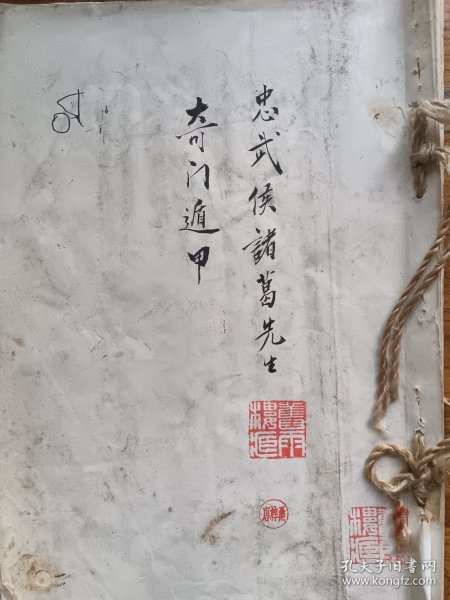 忠武侯諸葛先生
奇门遁甲
孔夫子旧书网
www.kongfz.com